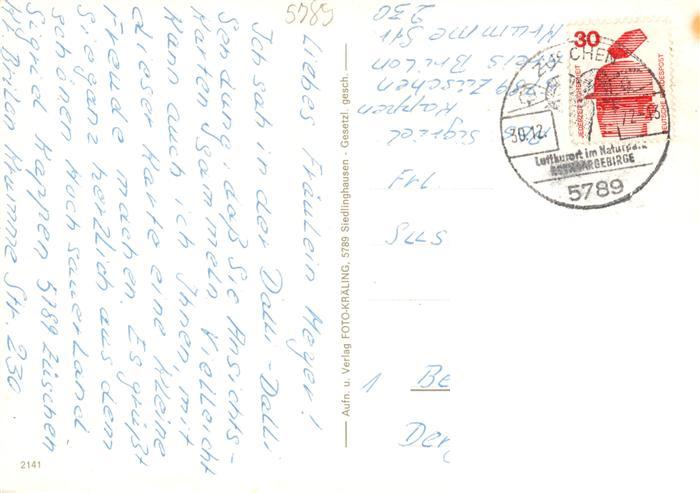 5789
Liebes Fräulein Meyer!
Ich sah in der Dalli-Dalli
Sendung, daß Sie Ansichts-
karten sammeln. Vielleicht
kann auch ich Ihnen, mit
dieser Karte eine kleine
Freude machen. Es grüßt
Sie ganz herzlich aus dem
schönen Hochsauerland
Sigrid Kappen 5789 Züschen
Krs Brilon Krumme Str. 230
2141
Aufn. u. Verlag FOTO-KRÄLING, 5789 Siedlinghausen - Gesetzl. gesch.
Sigrid
Kappen
5789 Züschen
Krs Brilon
Krumme Str
230
Frl.
1 Be
30
JEDERZEIT SICHERHEIT
DEUTSCHE BUNDESPOST
ZÜSCHEN
30.12.
Luftkurort im Naturpark
ROTHAARGEBIRGE
5789